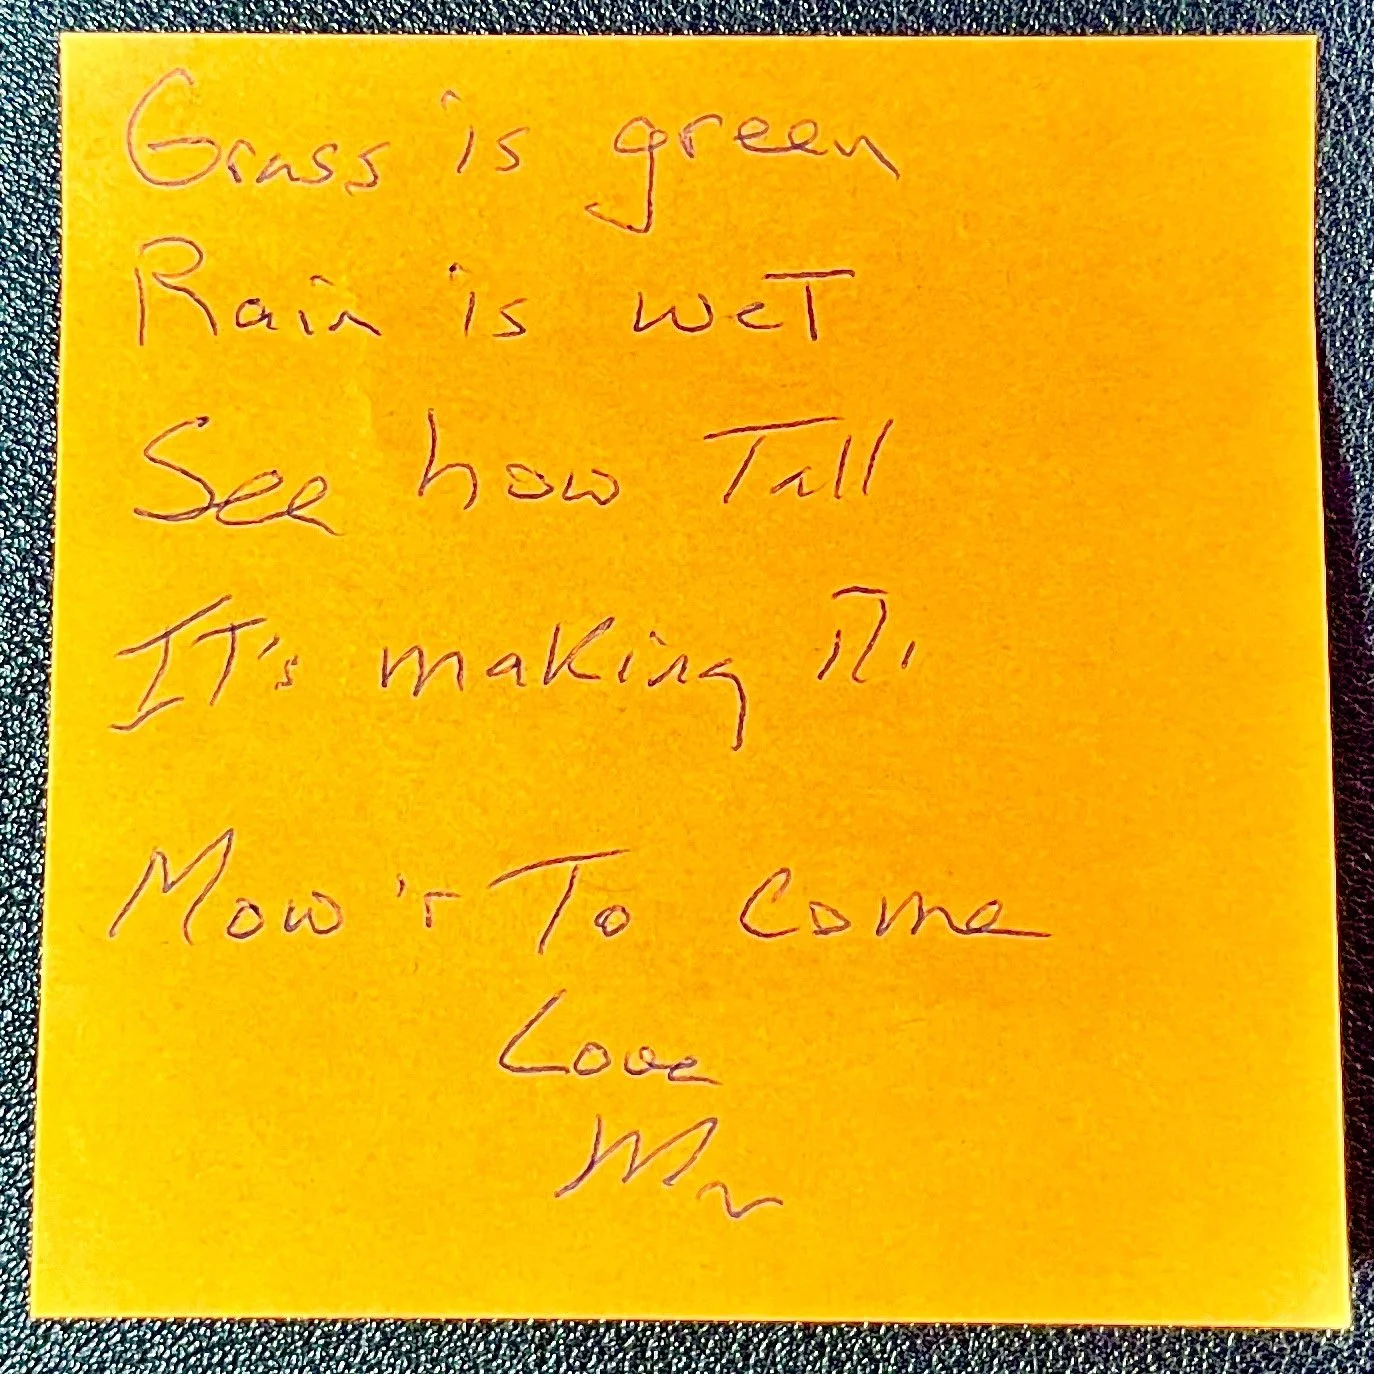 Grass is green
Rain is wet
See how Tall
It's making it.
Mow'r To Come
Love